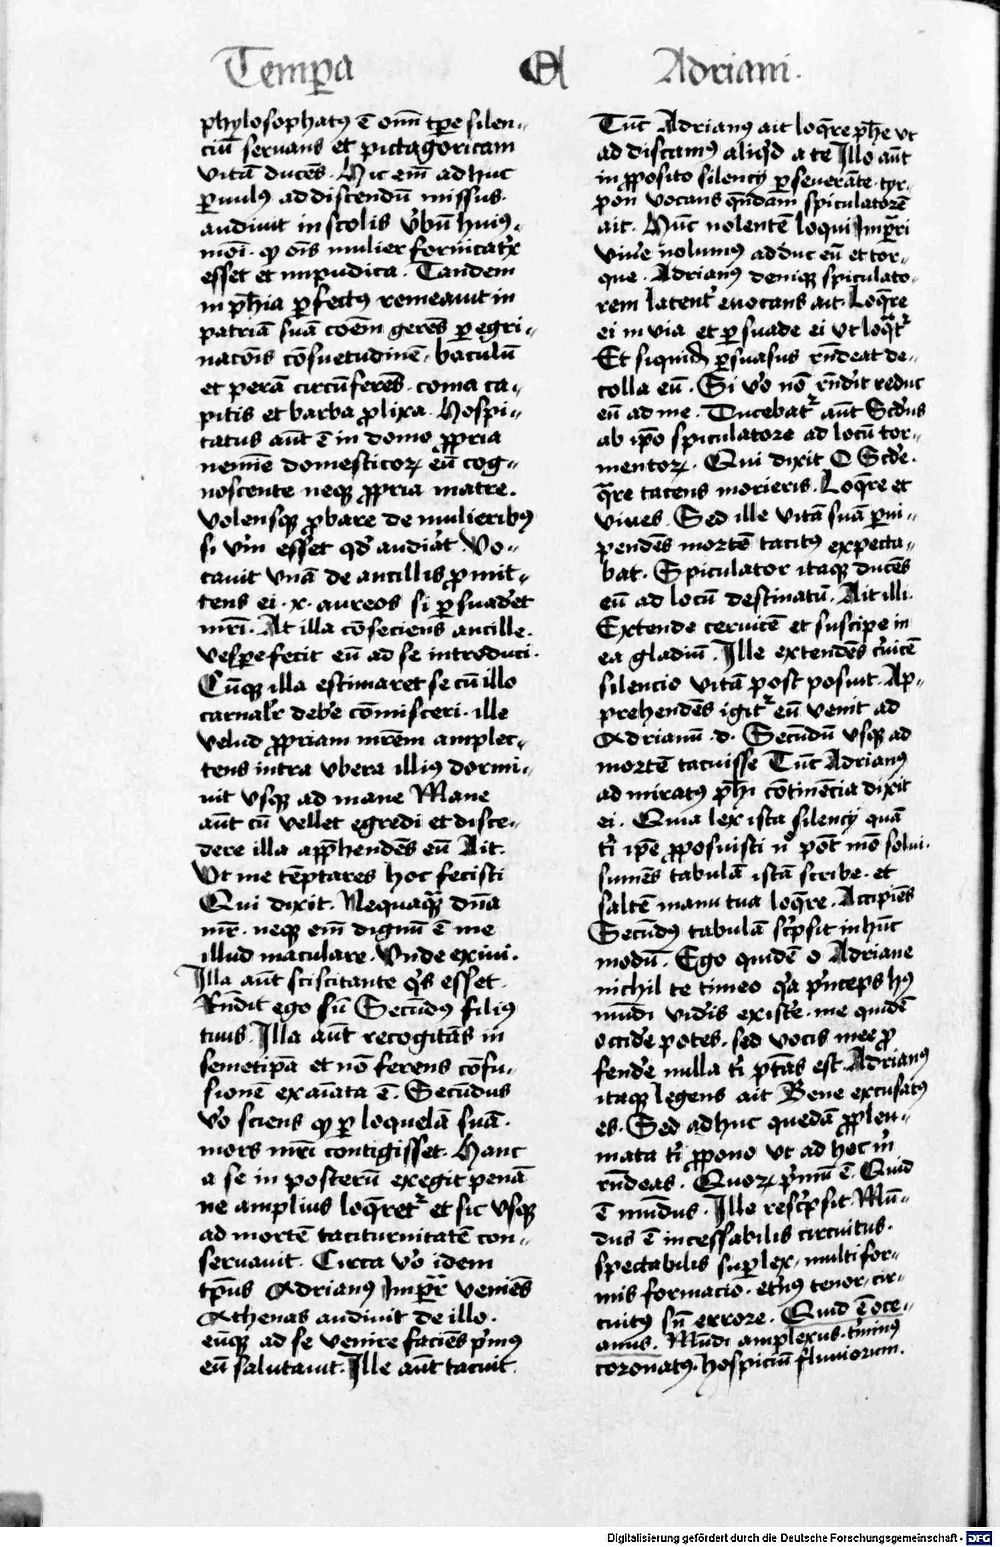 Tempa A Adriani.
phylosophatꝰ ē om̄i tp̄e silen„
ciū seruans et pictagoricam
vitā duces̄. Hic em̄ adhuc
ꝑuulꝰ ad discendū missus.
audiuit in scolis v̓bū huiꝰ„
mōi. ꝙ oīs mulier fornicat͛x
esset et impudica. Tandem
in ph̄ia ꝑfectꝰ remeauit in
patriā suā cōem̄ geres̄ ꝑegri„
nacōis cōsuetudinē. baculū
et perā circūferes̄. coma ca„
pitis et barba ꝓlixa. Hospi„
tatus aūt ē in domo ꝓpria
nemīe domesticoꝝ eū cog„
noscente neqꝫ ꝓpria matre.
volensqꝫ ꝓbare de mulieribꝰ
si vm̄ esset qd̓ audiāt. Vo„
cauit vnā de ancillis ꝓmit„
tens ei .x. aureos si ꝑsuadēt
mr̄i. At illa cōseciens̄ ancille.
vesꝑe fecit eū ad se introduci.
Cūqꝫ illa estimaret se cū illo
carnalr̄ debe̓ cōmisceri. ille
velud ꝓpriam mr̄em amplec„
tens intra vbera illiꝰ dormi„
uit vsqꝫ ad mane Mane
aūt cū vellet egredi et disce„
dere illa app̄hendēs eū Ait.
Vt me tēptares hoc fecisti
Qui dixit. Nequaq̄ꝫ dn̄a
mr̄. neqꝫ em̄ dignū ē me
illud maculare. Vnde exiui.
Illa aūt sciscitante q̓s esset.
Rn̄dit ego sū Secūdꝰ filiꝰ
tuus. Illa aūt recogitās in
semetip̄a et nō ferens cōfu„
sionē exaīata ē. Secūdus
vo̓ sciens ꝙ ꝑ loquelā suā.
mors mr̄i contigisset. Hanc
a se in posterū exegit penā
ne amplius loq̄ret᷑ et sic vsqꝫ
ad mortē taciturnitatē con„
seruauit. Circa vo̓ idem
tp̄us Adrianꝰ Imꝑr̄ venies̄
Athenas audiuit de illo.
eūqꝫ ad se venire facies̄ p̓mꝰ
eū salutauit. Ille aūt tacuit.
Tūc Adrianꝰ ait loq̄re ph̄e vt
ad discamꝰ aliq̓d a te Illo aūt
in ꝓposito silencÿ ꝑseuerāte. tyr„
pon vocans qn̄dam spiculatorē
ait. Hūc nolentē loqui Imꝑr̄i
viue̓ nolumꝰ adduc eū et tor„
que. Adrianꝰ deniqꝫ spiculato„
rem latent̓ euocans ait. Loq̄re
ei in via et ꝑsuade ei vt loq̄t᷑
Et siquid̓ ꝑsuasus rn̄deat de„
colla eū. Si vo̓ nō rn̄dit reduc
eū ad me. Ducebat᷑ aūt Scd̓us
ab ip̄o spiculatore ad locū tor„
mentoꝝ. Qui dixit O Scd̓e.
q̄re tacens morieris. Loq̄re et
viues. Sed ille vitā suā ꝑui„
pendēs mortē tacitꝰ expecta„
bat. Spiculator itaqꝫ ducēs
eū ad locū destinatū. Ait illi.
Extende ceruicē et suscipe in
ea gladiū. Ille extendēs c̓uicē
silencio vitā post posuit. Ap„
prehendēs igit᷑ eū venit ad
Adrianū .d. Secūdū vsqꝫ ad
mortē tacuisse Tūc Adrianꝰ
ad miratꝰ ph̄i cōtinēcia dixit
ei. Quia lex ista silencÿ quā
t̓i ip̄e ꝓposuisti nº pōt mō solui.
sumēs tabulā istā scribe. et
saltē manu tua loq̄re. Accipiēs
Secūdꝰ tabulā sc̓psit in hūc
modū. Ego quidē o Adriane
nichil te timeo q̓a p̓nceps hꝰ
mūdi vid̓is existe̓. me quidē
occide̓ potes. sed vocis mee ꝓ
fende̓ nulla t̓i ptās est. Adrianꝰ
itaqꝫ legens ait Bene excusatꝰ
es. Sed adhuc quedā ꝓpleu„
mata t̓i ꝓpono vt ad hec m̓
rn̄deas. Quoꝝ p̓mū ē. Quid
ē mūdus. Ille resc̓psit. Mū„
dus ē incessabilis circuitus.
spectabilis suꝑlex. multifor„
mis formacio. et̓nꝰ tenor. cir„
cuitꝰ sn̄ errore. Quid ē oce„
anus. Mūdi amplexus. t̓minꝰ
coronatꝰ. hospiciū fluuiorum.
Digitalisierung gefördert durch die Deutsche Forschungsgemeinschaft - DFG